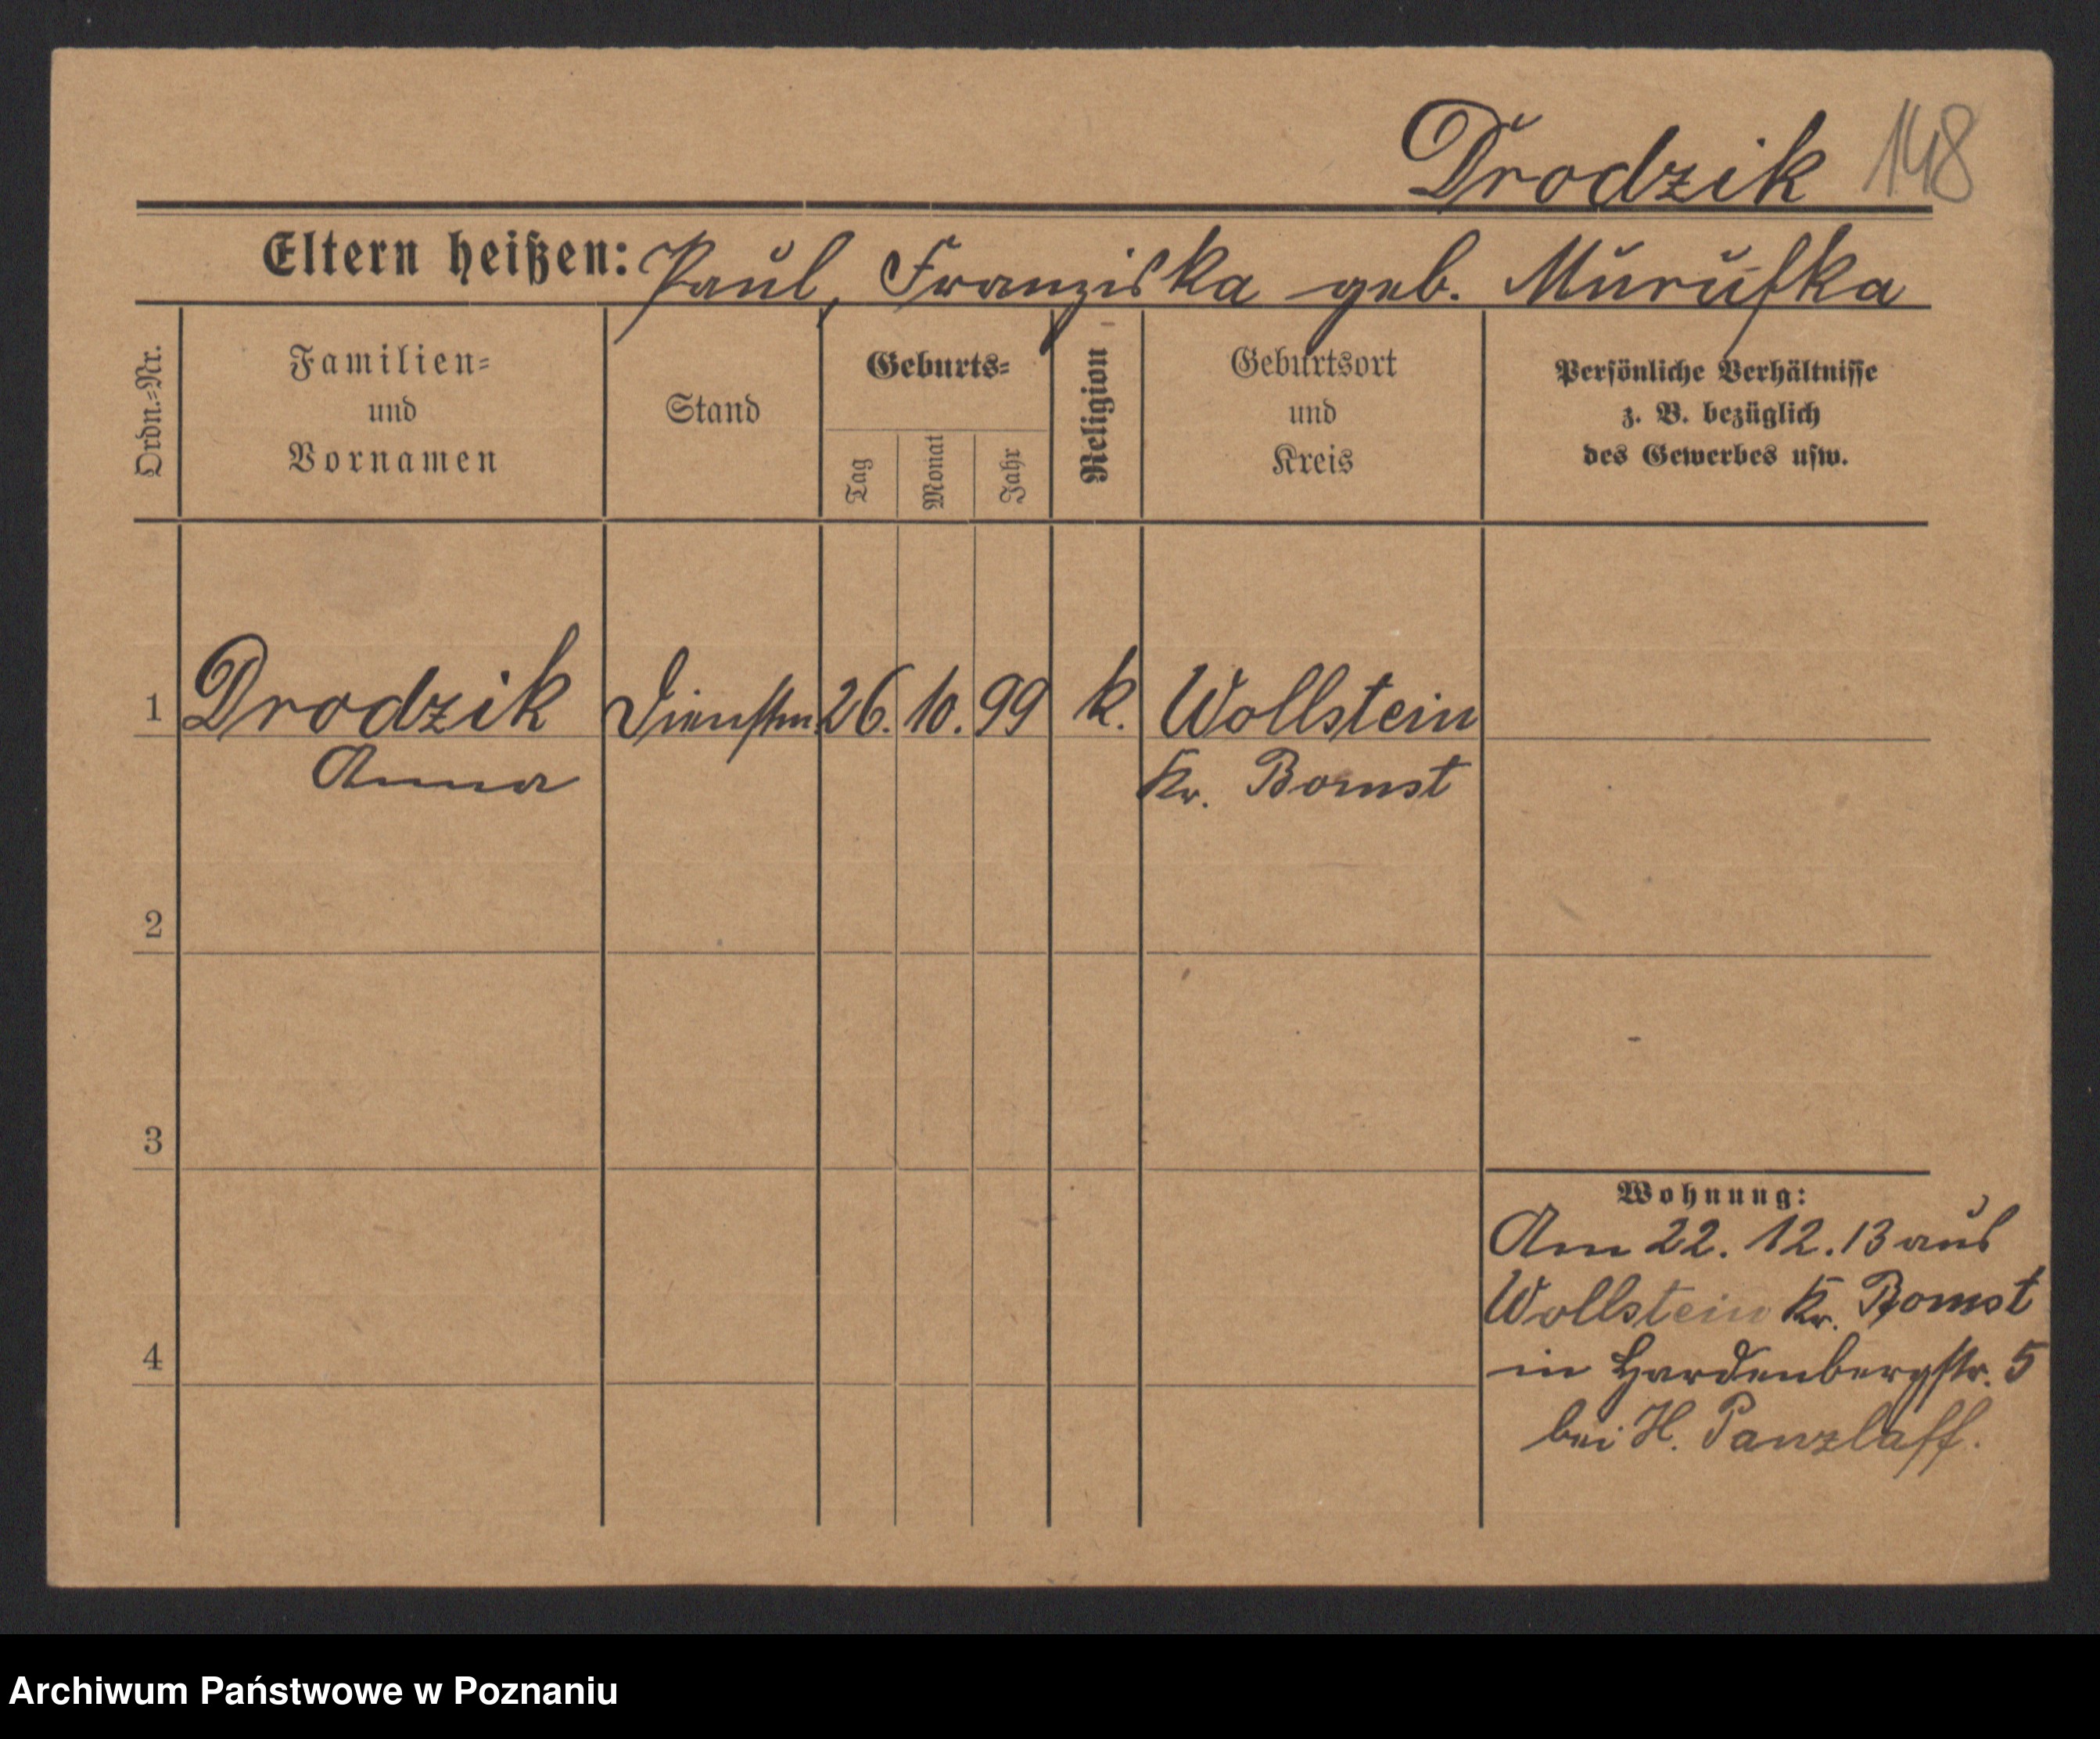 Drodzik 148
Eltern heißen: Paul, Franziska geb.
Ordn.-Nr.
Familien=
und
Vornamen
Stand
Geburts=
Tag
Monat
Jahr
Religion
Geburtsort
und
Kreis
Persönliche Verhältnisse
z. B. bezüglich
des Gewerbes usw.
1 Drodzik Dienstm. 26. 10. 99 k. Wollstein
Anna Kr. Bomst
2
3
Wohnung:
Am 22. 12. 13 aus
Wollstein Kr. Bomst
4
in Hardenbergstr. 5
bei H. Panzlaff.
Archiwum Państwowe w Poznaniu